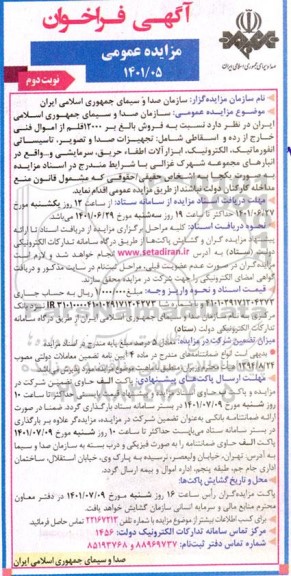 آگهی فراخوان
مزایده عمومی
۱۴۰۱/۰۵
صدا و سیمای جمهوری اسلامی ایران
نوبت دوم
نام سازمان مزایده‌گزار: سازمان صدا و سیمای جمهوری اسلامی ایران
موضوع مزایده عمومی: سازمان صدا و سیمای جمهوری اسلامی
ایران در نظر دارد نسبت به فروش بالغ بر ۱۲۰۰۰قلم از اموال فنی
خارج از رده و اسقاطی شامل: تجهیزات صدا و تصویر، تاسیساتی
انفورماتیک، الکترونیک، ابزارآلات اطفاء حریق، سرمایشی و...واقع در
انبارهای مجموعه شهرک غزالی با شرایط مندرج در اسناد مزایده
به صورت یکجا به اشخاص حقیقی/حقوقی که مشمول قانون منع
مداخله کارکنان دولت نباشند از طریق مزایده عمومی اقدام نماید.
مهلت دریافت اسناد مزایده از سامانه ستاد: از ساعت ۱۲ روز یکشنبه مورخ
۱۴۰۱/۰۶/۲۷ حداکثر تا ساعت ۱۹ روز سه‌شنبه مورخ ۱۴۰۱/۰۶/۲۹ می‌باشد.
نحوه دریافت اسناد: کلیه مراحل برگزاری مزایده از دریافت اسناد تا ارائه
پیشنهاد مزایده گران و گشایش پاکت‌ها از طریق درگاه سامانه تدارکات الکترونیکی
دولت (ستاد) به آدرس www.setadiran.ir انجام خواهد شد و لازم است
مزایده‌گران در صورت عدم عضویت قبلی، مراحل ثبت‌نام در سایت مذکور و دریافت
گواهی امضای الکترونیکی را جهت شرکت در مزایده محقق سازند.
قیمت اسناد و نحوه واریز وجه: مبلغ ۱/۰۰۰/۰۰۰ ریال به حساب جاری
سازمان صدا و سیمای جمهوری اسلامی ایران از طریق درگاه سامانه
تدارکات الکترونیکی دولت (ستاد)
میزان تضمین شرکت در مزایده: معادل ۵ درصد مبلغ پایه مندرج در اسناد مزایده
مهلت ارسال پاکت‌های پیشنهادی: پاکت الف حاوی تضمین شرکت در
روز شنبه مورخ ۱۴۰۱/۰۷/۰۹ در بستر سامانه ستاد بارگذاری گردد. ضمنا در صورت
ارائه ضمانتنامه بانکی به‌عنوان تضمین شرکت در مزایده، مزایده‌گر علاوه بر بارگذاری
در بستر سامانه ستاد می‌بایست حداکثر تا ساعت ۱۰ روز شنبه مورخ ۱۴۰۱/۰۷/۰۹
پاکت الف حاوی ضمانتنامه را به صورت فیزیکی و درب بسته به سازمان صدا و سیما
به آدرس: تهران، خیابان ولیعصر، نرسیده به پارک وی، خیابان استقلال، ساختمان
اداری جام جم، طبقه پنجم، اداره اموال و بیمه ارسال گردد.
محل و تاریخ گشایش پاکت‌ها:
پاکت مزایده‌گران رأس ساعت ۱۶ روز شنبه مورخ ۱۴۰۱/۰۷/۰۹ در دفتر معاون
محترم منابع مالی و سرمایه انسانی سازمان گشایش خواهد یافت.
برای کسب اطلاعات بیشتر از موضوع مزایده با شماره تلفن ۲۲۱۶۷۲۱۲ تماس حاصل فرمائید.
مرکز تماس سامانه تدارکات الکترونیک دولت: ۱۴۵۶
شماره تماس دفتر ثبت‌نام: ۸۸۹۶۹۷۳۷ و ۸۵۱۹۳۷۶۸
صدا و سیمای جمهوری اسلامی ایران